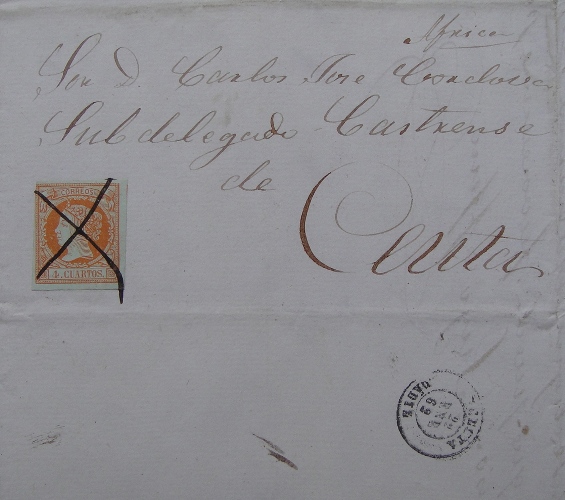 Africa
Sor D. Carlos Jose Cordova
Subdelegado Castrense
de
Ceuta
CORREOS
4. CUARTOS.
CEUTA
CADIZ